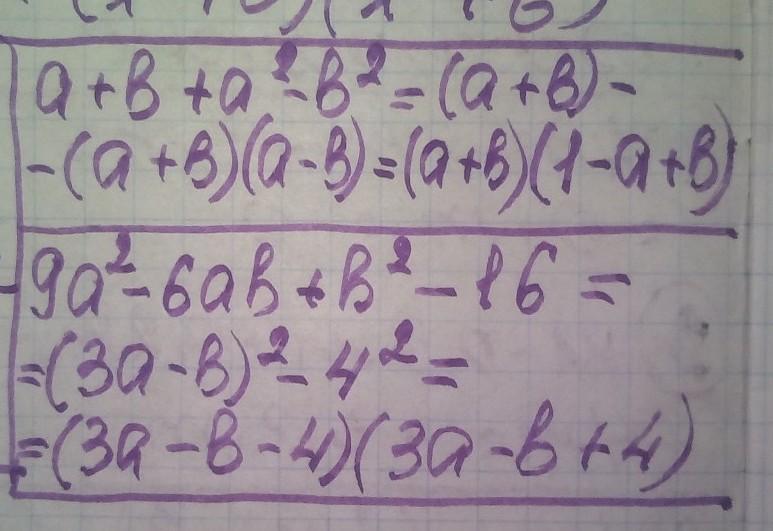 a+b+a²-b²=(a+b)-
-(a+b)(a-b)=(a+b)(1-a+b)
9a²-6ab+b²-16=
=(3a-b)²-4²=
=(3a-b-4)(3a-b+4)